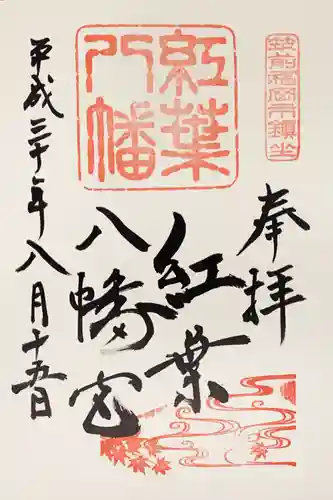 筑前福岡市鎮坐
奉拝
紅葉
八幡
紅葉
八幡宮
平成三十年八月十五日